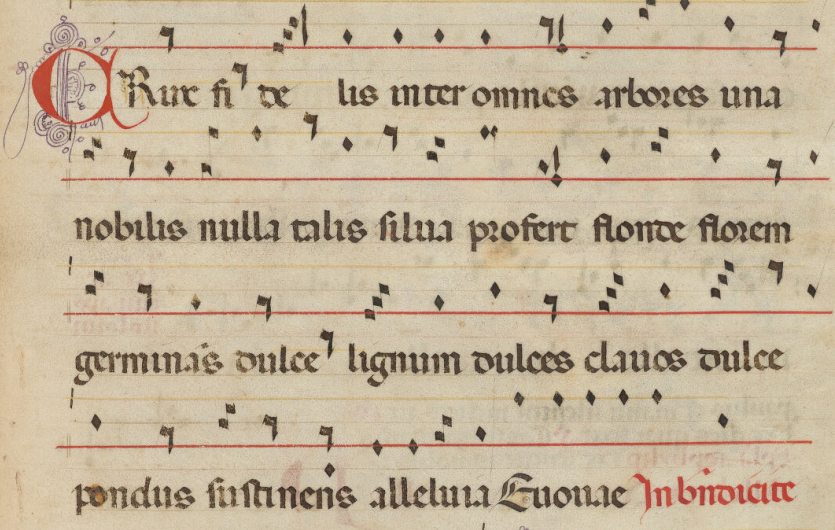 CRux fi de lis inter omnes arbores una
nobilis nulla talis silua profert fronde florem
germinans dulce lignum dulces clauos dulce
pondus sustinens alleluia Euouae In bndicite